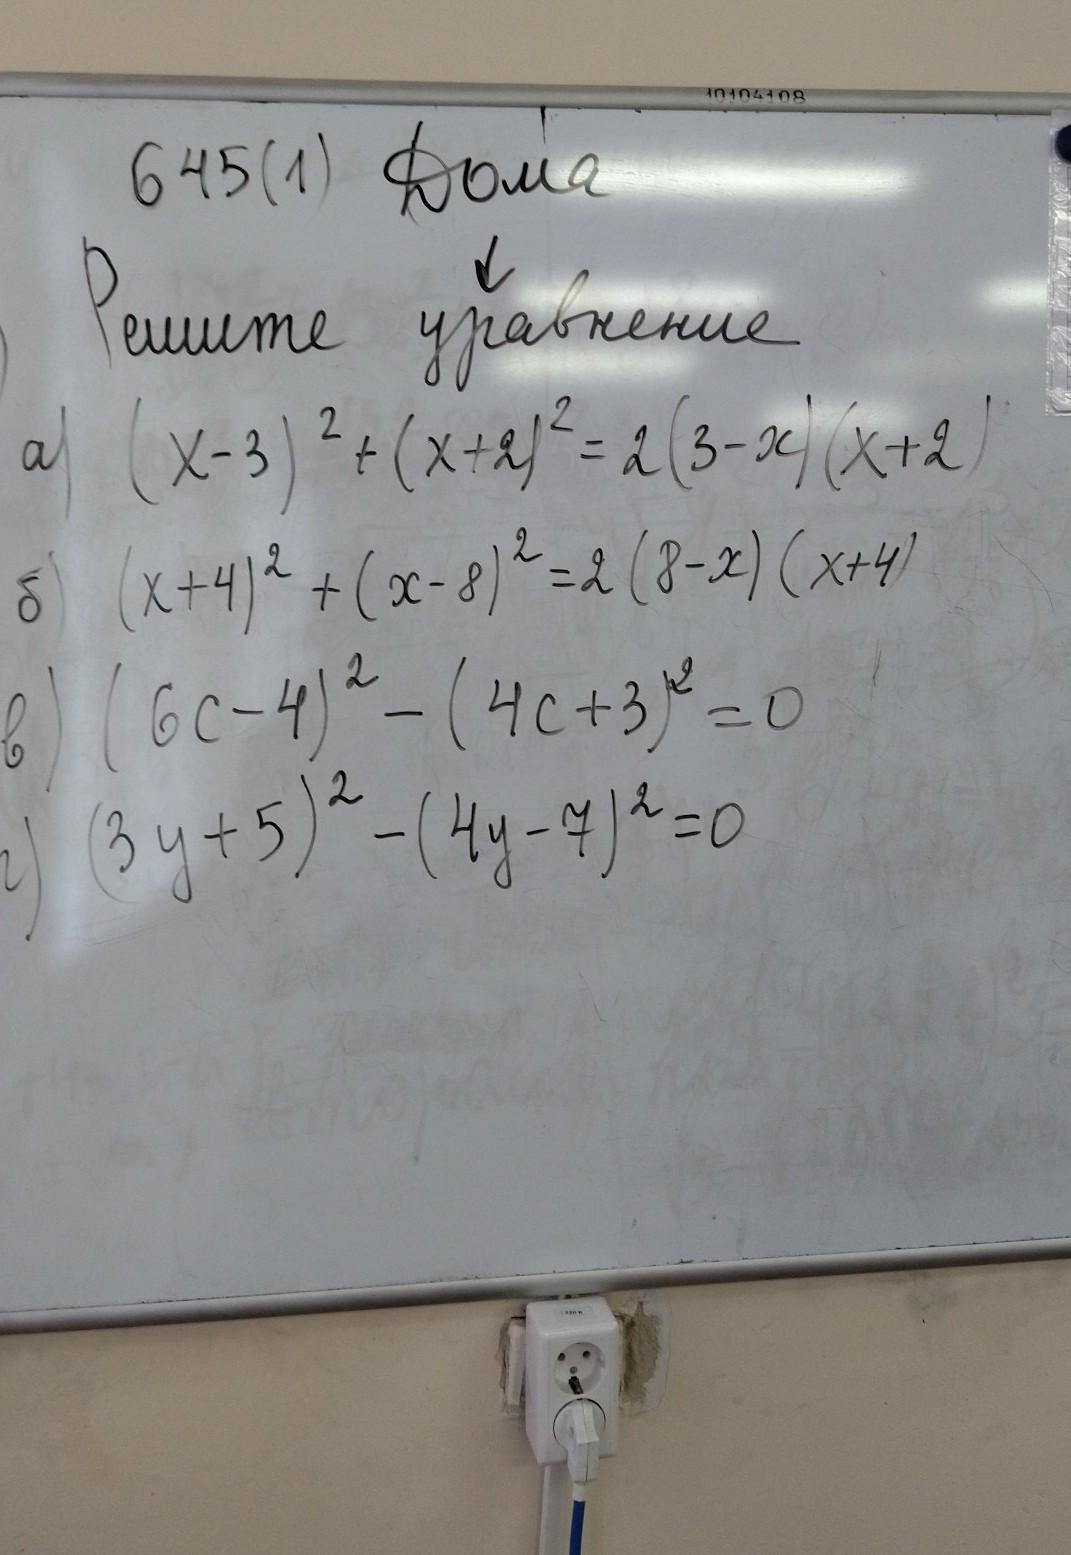 10104108
645(1) Дома
↓
Решите уравнение
а) (x-3)² + (x+2)² = 2(3-x)(x+2)
б) (x+4)² + (x-8)² = 2(8-x)(x+4)
в) (6c-4)² - (4c+3)² = 0
г) (3y+5)² - (4y-7)² = 0